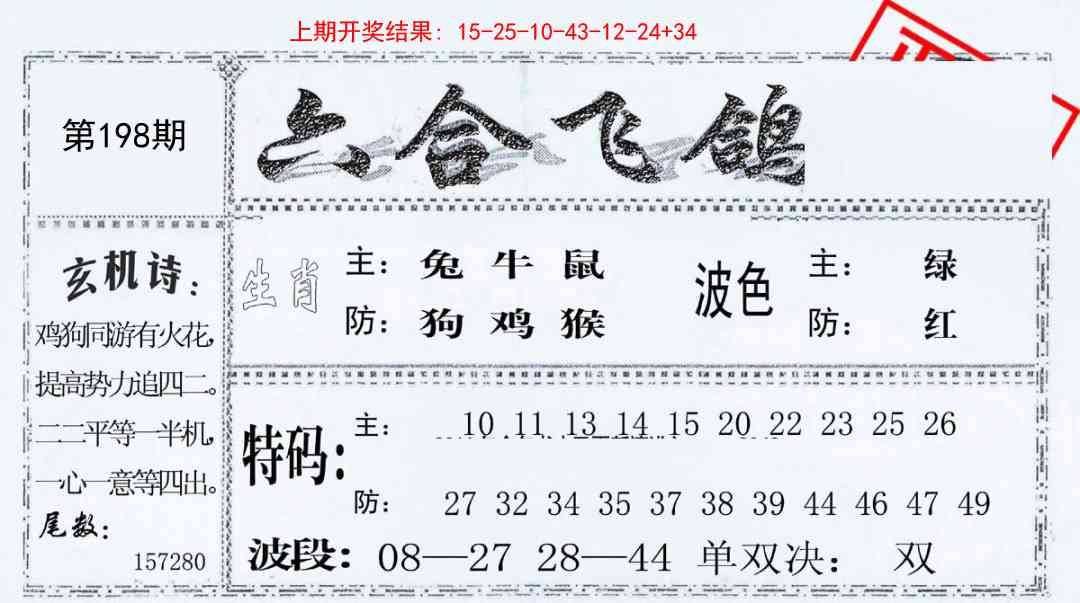 上期开奖结果：15-25-10-43-12-24+34
第198期
六合飞鸽
玄机诗：
鸡狗同游有火花，
提高势力追四二。
二二平等一半机，
一心一意等四出。
尾数：
157280
生肖
主：兔 牛 鼠
防：狗 鸡 猴
波色
主：绿
防：红
特码：
主：10 11 13 14 15 20 22 23 25 26
防：27 32 34 35 37 38 39 44 46 47 49
波段：08—27 28—44 单双决：双